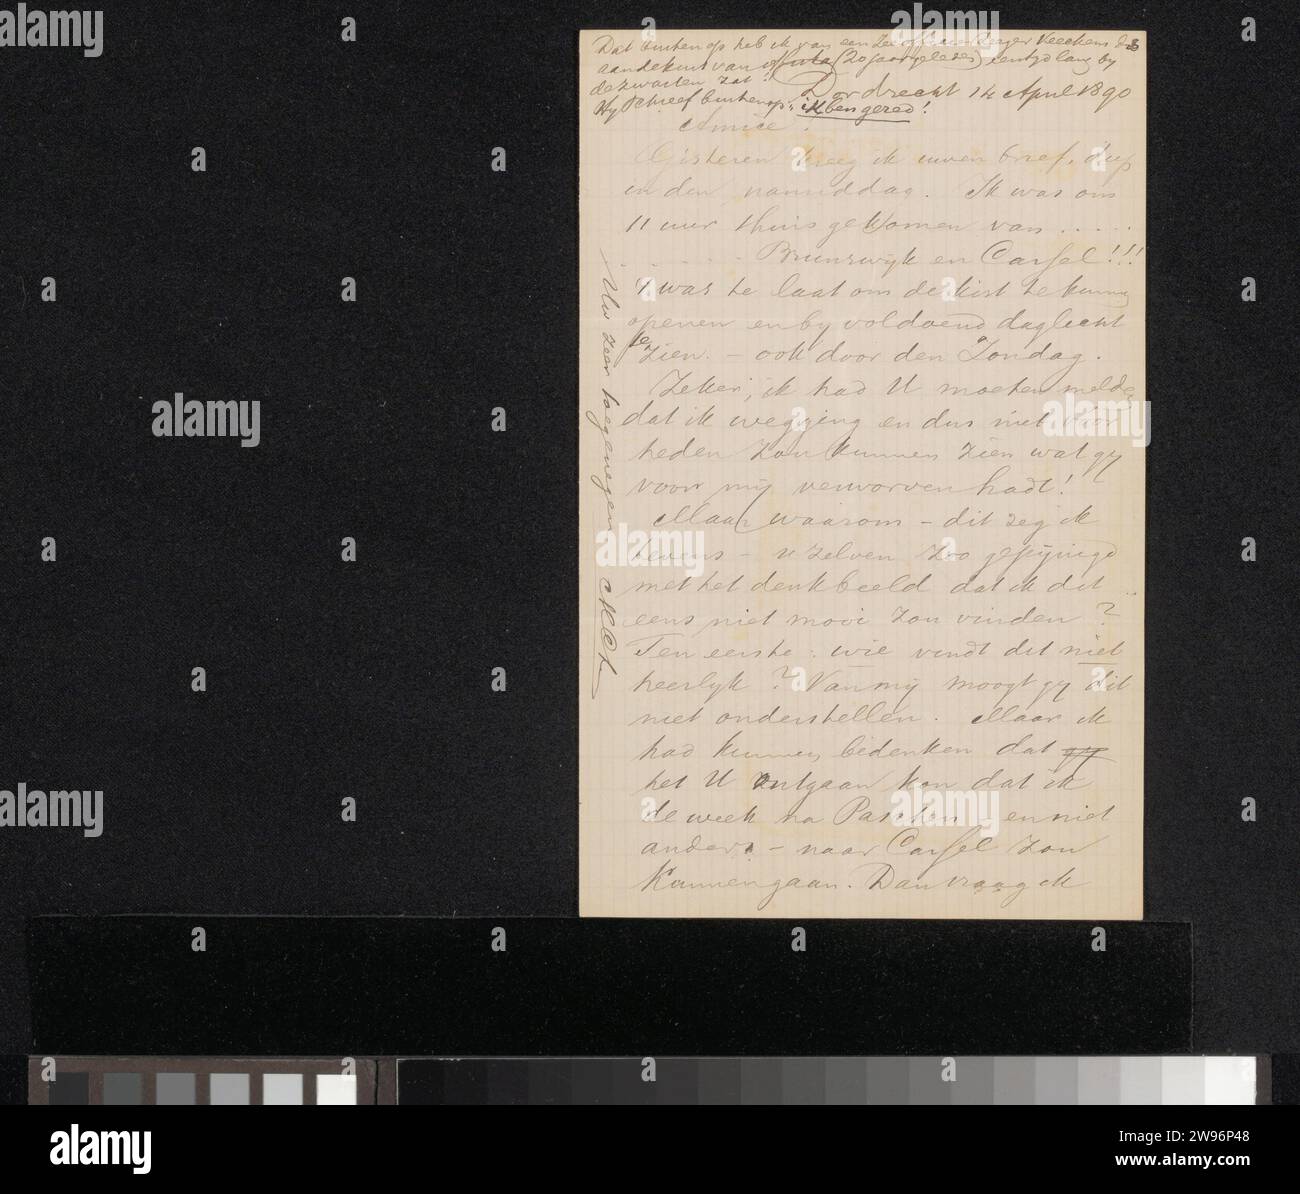 Dat buiten op heb ik van een zeeofficier Veeckens die
aan de kust van (20 jaar geleden) lang by
de zwarten zat.
Hy schreef buiten op: ik ben gered!
Dordrecht 14 April 1890
Amice.
Gisteren kreeg ik uwen brief, diep
in den namiddag. Ik was om
11 uur thuis gekomen van . . . . .
. . . . . . . Brunswijk en Cassel!!!
't was te laat om de kist te kunnen
openen en by voldoend daglicht
te zien. – ook door den Zondag.
Zeker, ik had U moeten melden
dat ik wegging en dus niet vóór
heden zou kunnen zien wat gy
voor mij verworven hadt!
Maar waarom – dit zeg ik
tevens – u zelven zoo gepijnigd
met het denkbeeld dat ik dit
eens niet mooi zou vinden?
Ten eerste: wie vindt dit niet
heerlyk? Van mij moogt gy dit
niet onderstellen. Maar ik
had kunnen bedenken dat gy
het U ontgaan kon dat ik
de week na Paschen – en niet
anders – naar Cassel zou
kunnen gaan. Dan vraag ik
Uw zeer toegenegen
alamy
Image ID: 2W96P48
www.alamy.com